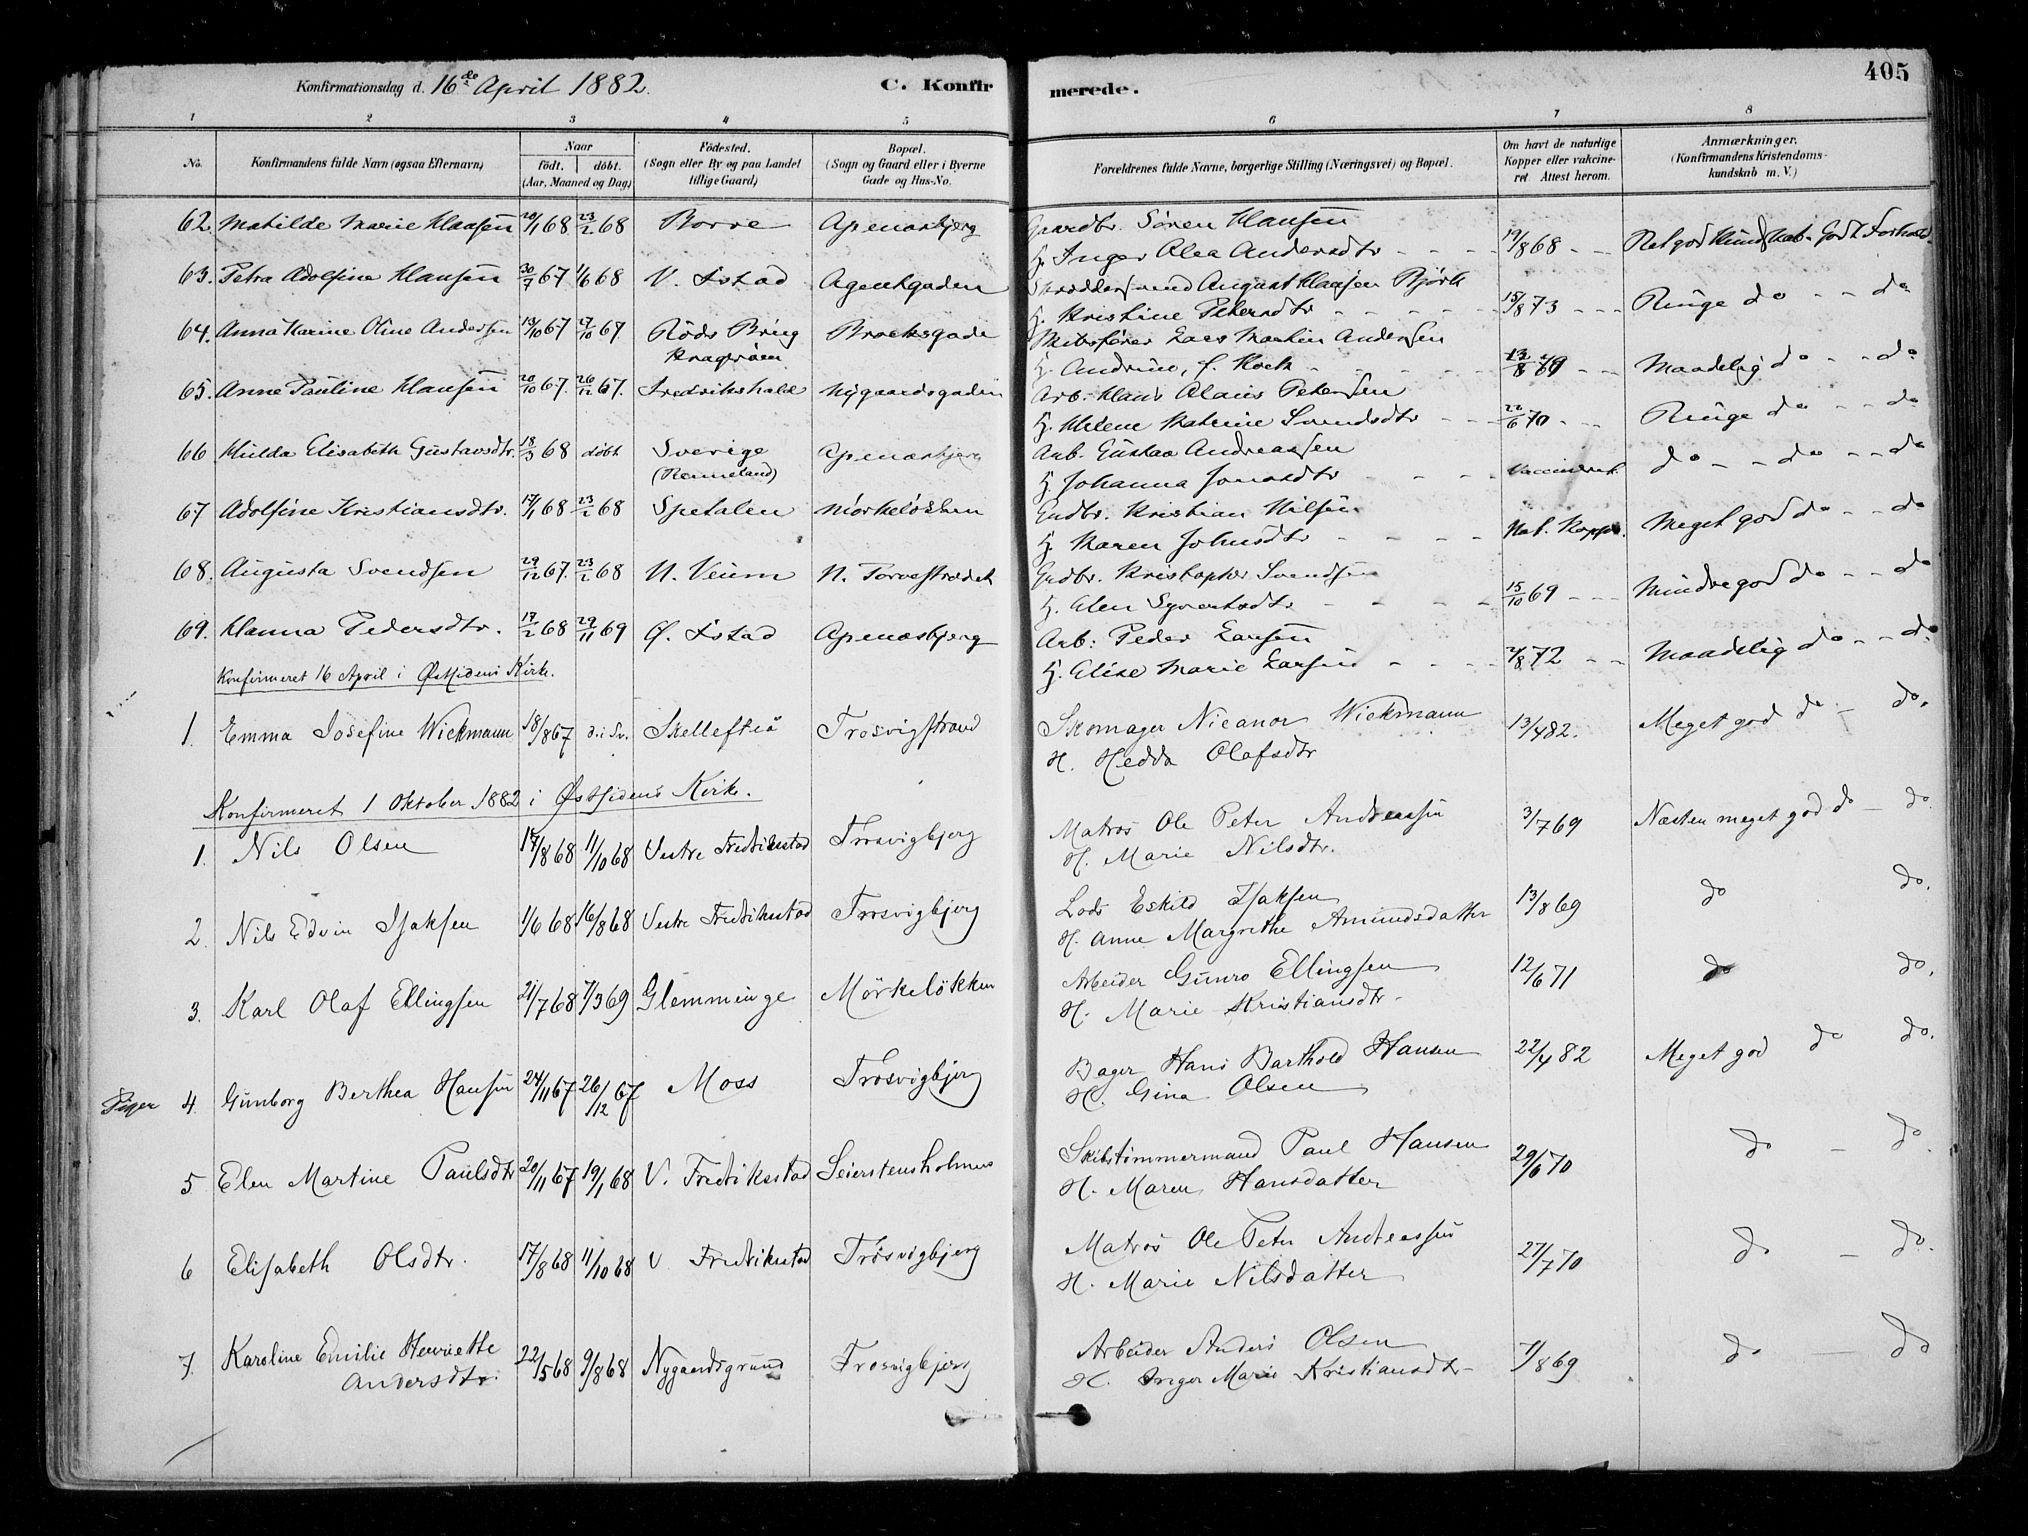 Konfirmationsdag d. 16de April 1882. C. Konfirmerede. 405
1 2 3 4 5 6 7 8
No. Konfirmandens fulde Navn (ogsaa Efternavn) Naar født. døbt. (Aar, Maaned og Dag) Fødested. (Sogn eller By og paa Landet tillige Gaard) Bopæl. (Sogn og Gaard eller i Byerne Gade og Hus-No. Forældrenes fulde Navne, borgerlige Stilling (Næringsvei) og Bopæl. Om havt de naturlige Kopper eller vaccineret Attest herom. Anmærkninger. (Konfirmandens Kristendomskundskab m. V.)
62. Matilde Marie Klausen 20/1 68 23/2 68 Borre Apenæsbjerg Gaardbr. Sören Klausen
H. Inger Alea Andersdtr 19/8 68 Ret god Kundskab. Godt Forhold
63. Petra Adolfine Klausen 30/7 67 1/6 68 V. Fstad Agentgaden August Klausen Björk
H. Kristine Petersdtr 15/8 73 Ringe do do
64. Anna Karine Oline Andersen 13/10 67 27/10 67 Röds Brug Brochsgade Skibsfører Lars Martin Andersen
Kragerøen H. Andrine, f. Koch 69 Maadelig do do
65. Anne Pauline Klausen 20/10 67. 26/12 67. Fredrikshald Nygaardsgaden Arb. Klaus Olaus Petersen
H. Helene Katrine Svendsdtr 22/6 70 Ringe do do
66 Hulda Elisabeth Gustavsdtr. 18/3 68 döbt Sverige Apenæsbjerg Arb. Gustav Andreassen
(Renneland) H Johanna Jonasdtr Vaccineret do do do
67 Adolfine Kristiansdtr. 17/1 68 23/2 68 Spetalen Mörkelökken Gudbr. Kristian Nilsen
H. Karen Johnsdtr Nat. Kopper. Meget god do do
68. Augusta Svendsen 29/12 67. 23/2 68 N. Veum N. Torvestrædet Gudbr. Kristopher Svendsen
H. Alen Syvertsdtr 15/10 69 Mindre god do do
69. Hanna Pedersdtr. 17/2 68 29/11 69 Ø. Fstad Apenæsbjerg Arb: Peder Larsen
H. Elise Marie Larsen 2/8 72 Maadelig do do
Konfirmeret 16 April i Østsidens Kirke.
1. Emma Josefine Wickmann 18/8 67 d. i Sv. Skellefteå Trosvigstrand Skomager Nicanor Wickmann 13/4 82. Meget god do do.
H. Hedda Olafsdtr
Konfirmeret 1 Oktober 1882 i Østsidens Kirke.
1. Nils Olsen 17/8 68 11/10 68 Vestre Fredrikstad Trosvigbjerg Matros Ole Peter Andreassen 3/7 69 Næsten meget god do do.
H. Marie Nilsdtr.
2. Nils Edvin Isaksen 1/6 68 16/8 68 Vestre Fredrikstad Trosvigbjerg Lods Eskild Isaksen 13/8 69 do do.
H. Anne Margrethe Amundsdatter
3. Karl Olaf Ellingsen 21/7 68 7/3 69 Glemminge Mörkelökken Arbeider Gunro Ellingsen 12/6 71 do do.
H. Marie Kristiansdtr
Piger 4. Gunborg Berthea Hansen 24/11 67 26/12 67 Moss Trosvigbjerg Bager Hans Barthold Hansen 22/4 82 Meget god do do.
H. Gina Olsen
5 Elen Martine Paulsdtr 20/11 67 19/1 68 V. Fredrikstad Seierstensholmen Skibstømmermand Paul Hansen 29/6 70 do do
H. Maren Hansdatter
6 Elisabeth Olsdtr. 17/8 68 11/10 68 V Fredrikstad Trosvigbjerg Matros Ole Peter Andreassen 27/7 70 do do.
H. Marie Nilsdatter
7. Karoline Emilie Henriette Andersdtr. 22/5 68 9/8 68 Nygaardsgrund Trosvigbjerg Arbeider Anders Olsen 7/8 69 do do
H. Inger Marie Kristiansdtr